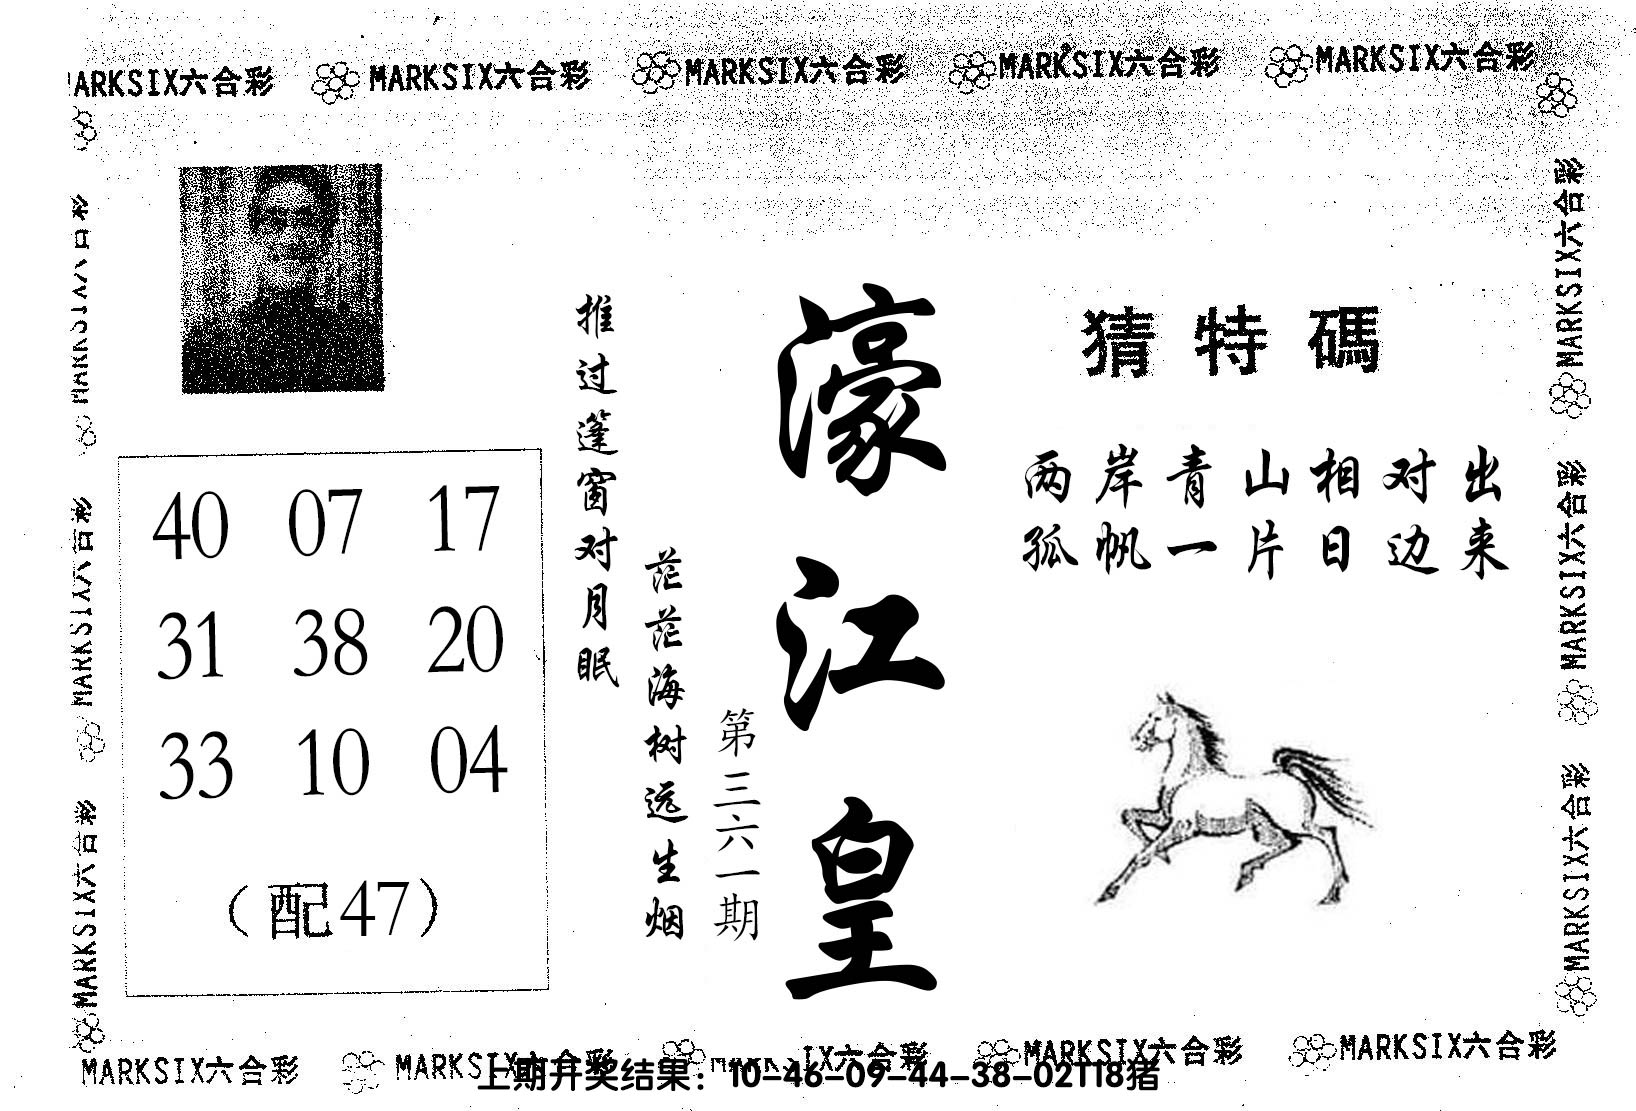 MARKSIX六合彩 MARKSIX六合彩 MARKSIX六合彩 MARKSIX六合彩 MARKSIX六合彩
MARKSIX六合彩
MARKSIX六合彩
MARKSIX六合彩
猜特碼
两岸青山相对出
孤帆一片日边来
濠江皇
第三六一期
推过篷窗对月眠
茫茫海树远生烟
40 07 17
31 38 20
33 10 04
（配47）
MARKSIX六合彩
MARKSIX六合彩
MARKSIX六合彩
MARKSIX六合彩 MARKSIX六合彩 六合彩 MARKSIX六合彩 MARKSIX六合彩
上期开奖结果：10-46-09-44-38-02T18猪